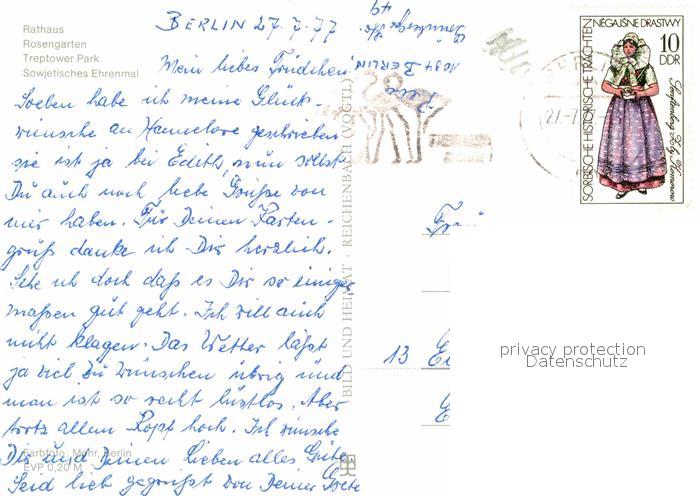 Rathaus
Rosengarten
Treptower Park
Sowjetisches Ehrenmal
BERLIN 27.7.77
1034 BERLIN,
49
Mein liebes Friedchen
Soeben habe ich meine Glück-
wünsche an Hannelore geschrieben
sie ist ja bei Edith, nun sollst
Du auch noch liebe Grüsse von
mir haben. Für Deinen Karten-
gruß danke ich Dir herzlich.
Sehe ich doch daß es Dir so einiger
maßen gut geht. Ich will auch
nicht klagen. Das Wetter läßt
ja viel zu wünschen übrig und
man ist so recht lustlos. Aber
trotz allem Kopf hoch. Ich wünsche
Dir und Deinen Lieben alles Gute
Seid lieb gegrüsst von Deiner
Farbfoto: Mohr, Berlin
EVP 0,20 M
BILD UND HEIMAT · REICHENBACH (VOGTL)
SORBISCHE HISTORISCHE TRACHTEN
ZNĚGAJŠNE DRASTWY
10
DDR
27.7
13
privacy protection
Datenschutz